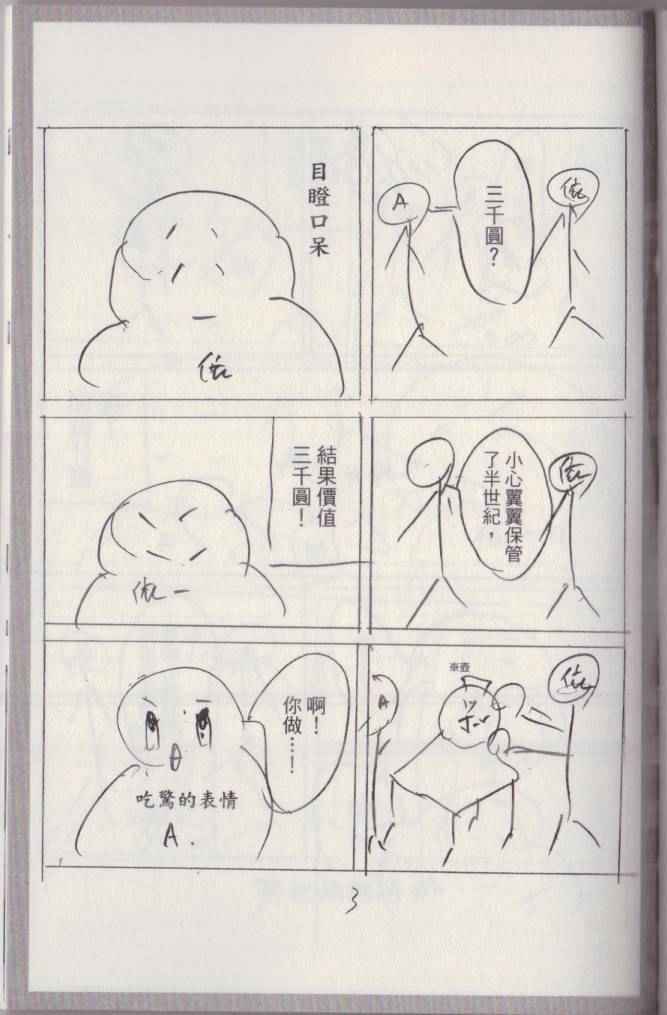 三千圓?
A
依
目瞪口呆
依
小心翼翼保管
了半世紀,
依
結果價值
三千圓!
依
※壺
依
A
ツボ
啊!
你做…!
吃驚的表情
A.
3